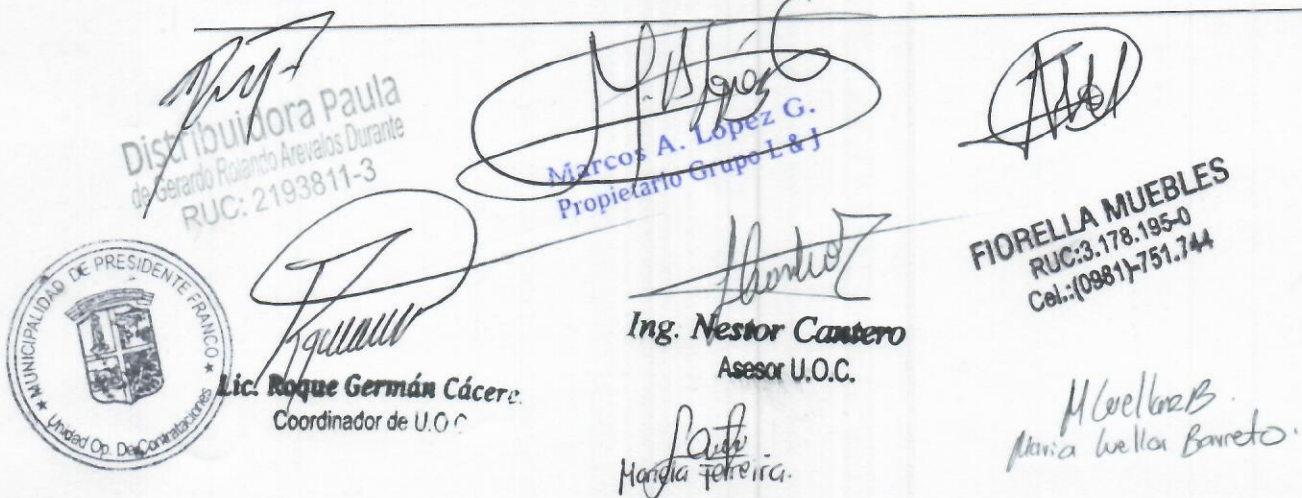 Distribuidora Paula
de Gerardo Rolando Arevalos Durante
RUC: 2193811-3
Marcos A. Lopez G.
Propietario Grupo L & J
FIORELLA MUEBLES
RUC:3.178.195-0
Cel.:(0981)-751.744
★ MUNICIPALIDAD DE PRESIDENTE FRANCO ★
Unidad Op. De Contrataciones
Lic. Roque Germán Cácere.
Coordinador de U.O.C
Ing. Nestor Cantero
Asesor U.O.C.
Ferreira.
Maria Barreto.